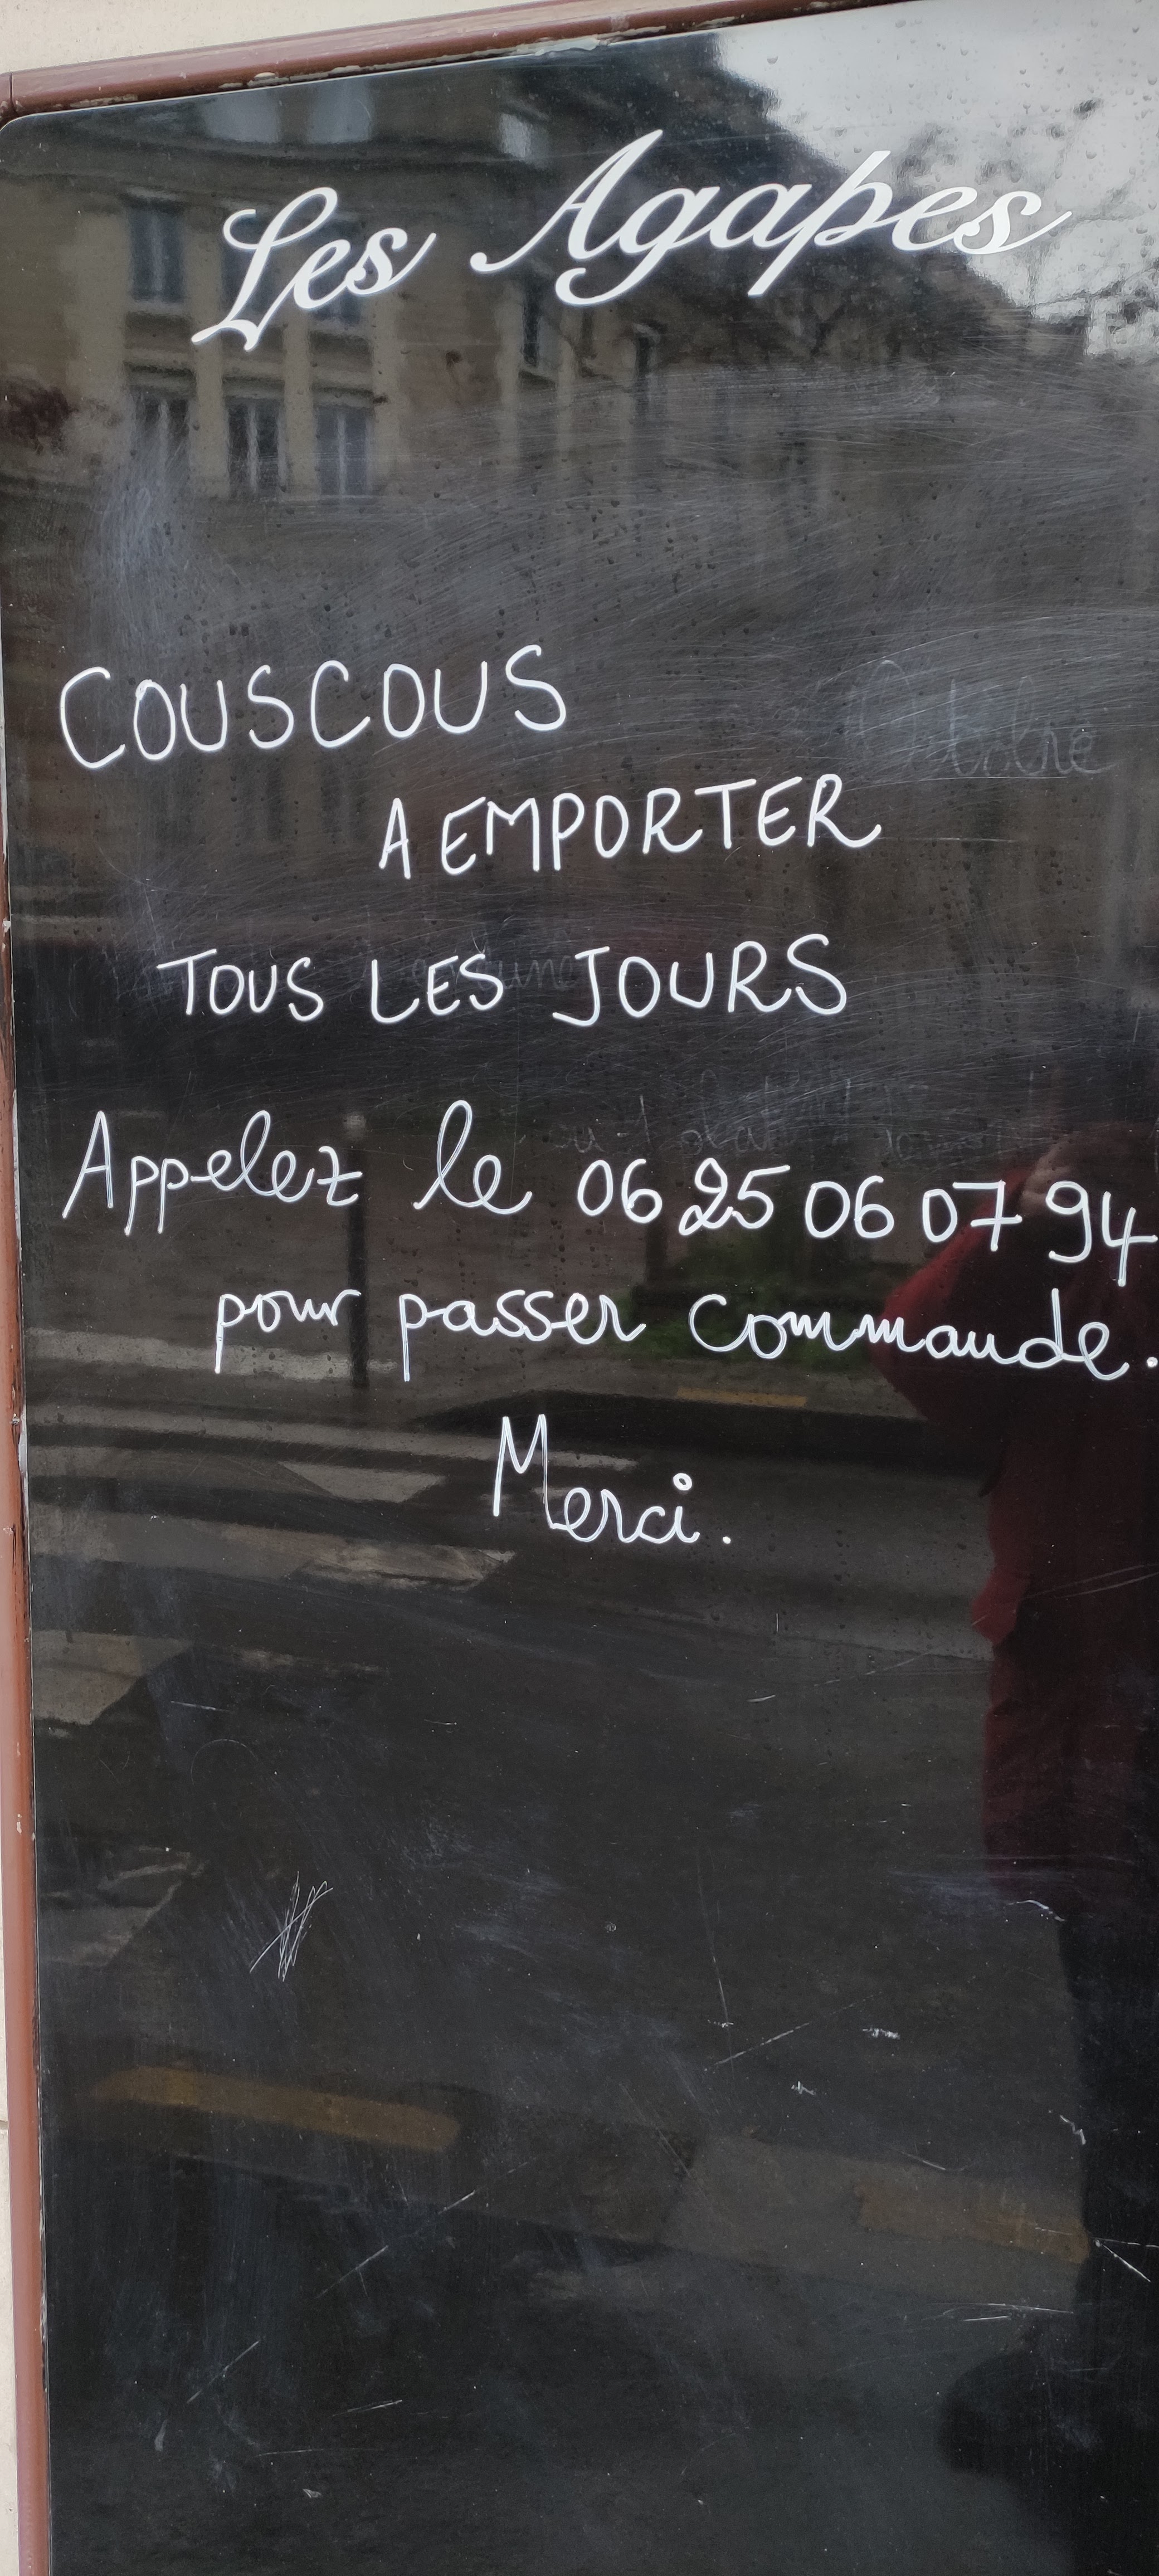 Les Agapes
COUSCOUS
A EMPORTER
TOUS LES JOURS
Appelez le 06 25 06 07 94
pour passer commande.
Merci.